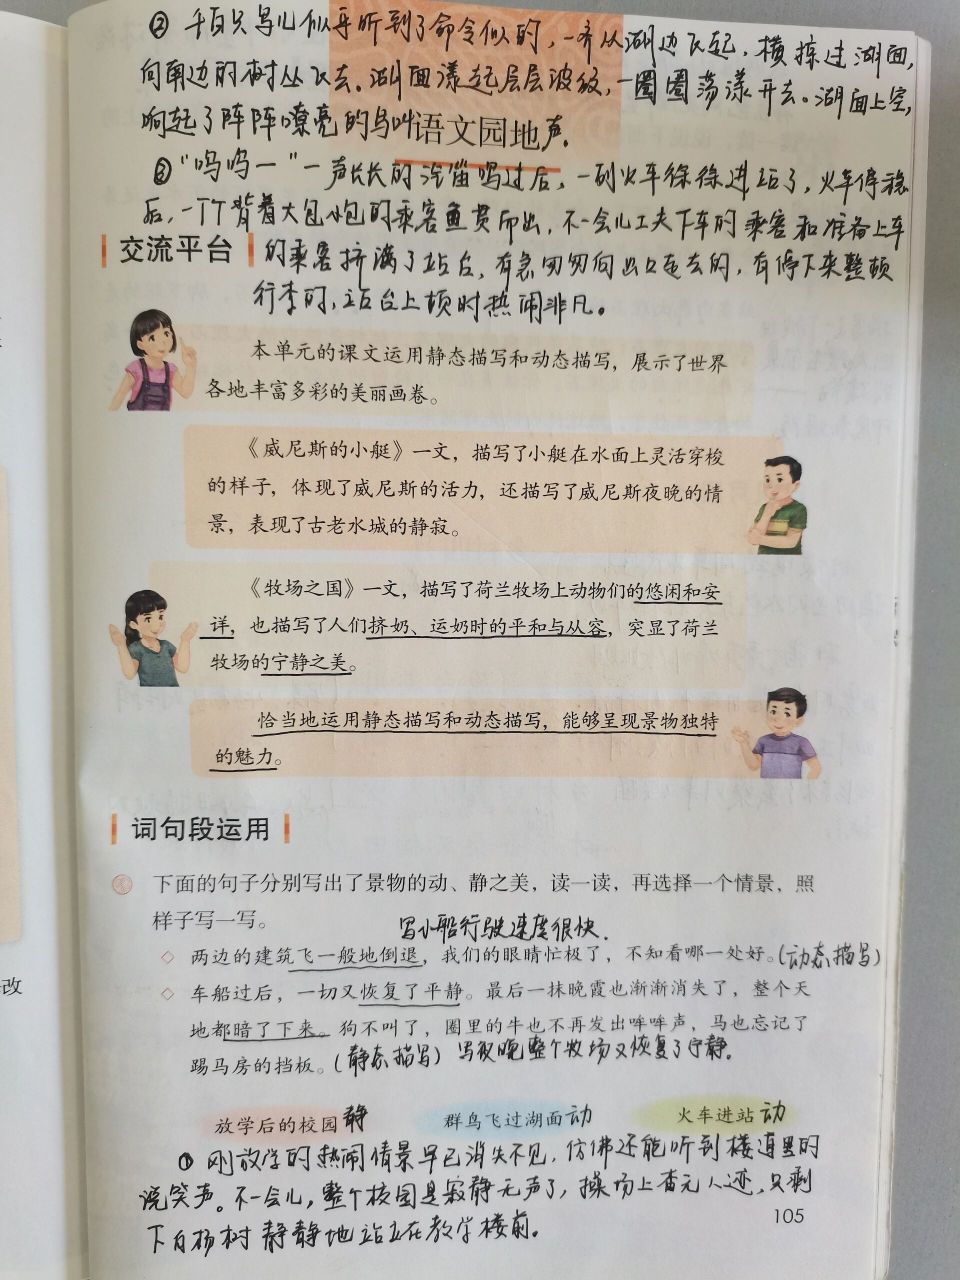 ② 千百只鸟儿似乎听到了命令似的，一齐从湖边飞起，横掠过湖面，
向南边的树丛飞去。湖面漾起层层波纹，一圈圈荡漾开去。湖面上空，
响起了阵阵嘹亮的鸟叫声。
语文园地
③ “呜呜一”一声长长的汽笛鸣过后，一列火车徐徐进站了，火车停稳
后，一个个背着大包小包的乘客鱼贯而出，不一会儿工夫下车的乘客和准备上车
的乘客挤满了站台，有急匆匆向出口走去的，有停下来整顿
行李的，站台上顿时热闹非凡。
交流平台
本单元的课文运用静态描写和动态描写，展示了世界
各地丰富多彩的美丽画卷。
《威尼斯的小艇》一文，描写了小艇在水面上灵活穿梭
的样子，体现了威尼斯的活力，还描写了威尼斯夜晚的情
景，表现了古老水城的静寂。
《牧场之国》一文，描写了荷兰牧场上动物们的悠闲和安
详，也描写了人们挤奶、运奶时的平和与从容，突显了荷兰
牧场的宁静之美。
恰当地运用静态描写和动态描写，能够呈现景物独特
的魅力。
词句段运用
下面的句子分别写出了景物的动、静之美，读一读，再选择一个情景，照
样子写一写。
写小船行驶速度很快.
◇ 两边的建筑飞一般地倒退，我们的眼睛忙极了，不知看哪一处好。(动态描写)
◇ 车船过后，一切又恢复了平静。最后一抹晚霞也渐渐消失了，整个天
地都暗了下来。狗不叫了，圈里的牛也不再发出哞哞声，马也忘记了
踢马房的挡板。(静态描写) 写夜晚整个牧场又恢复了宁静.
放学后的校园 静 群鸟飞过湖面 动 火车进站 动
① 刚放学的热闹情景早已消失不见，仿佛还能听到楼道里的
说笑声。不一会儿，整个校园是寂静无声了，操场上杳无人迹，只剩
下白杨树静静地站立在教学楼前。
105
改